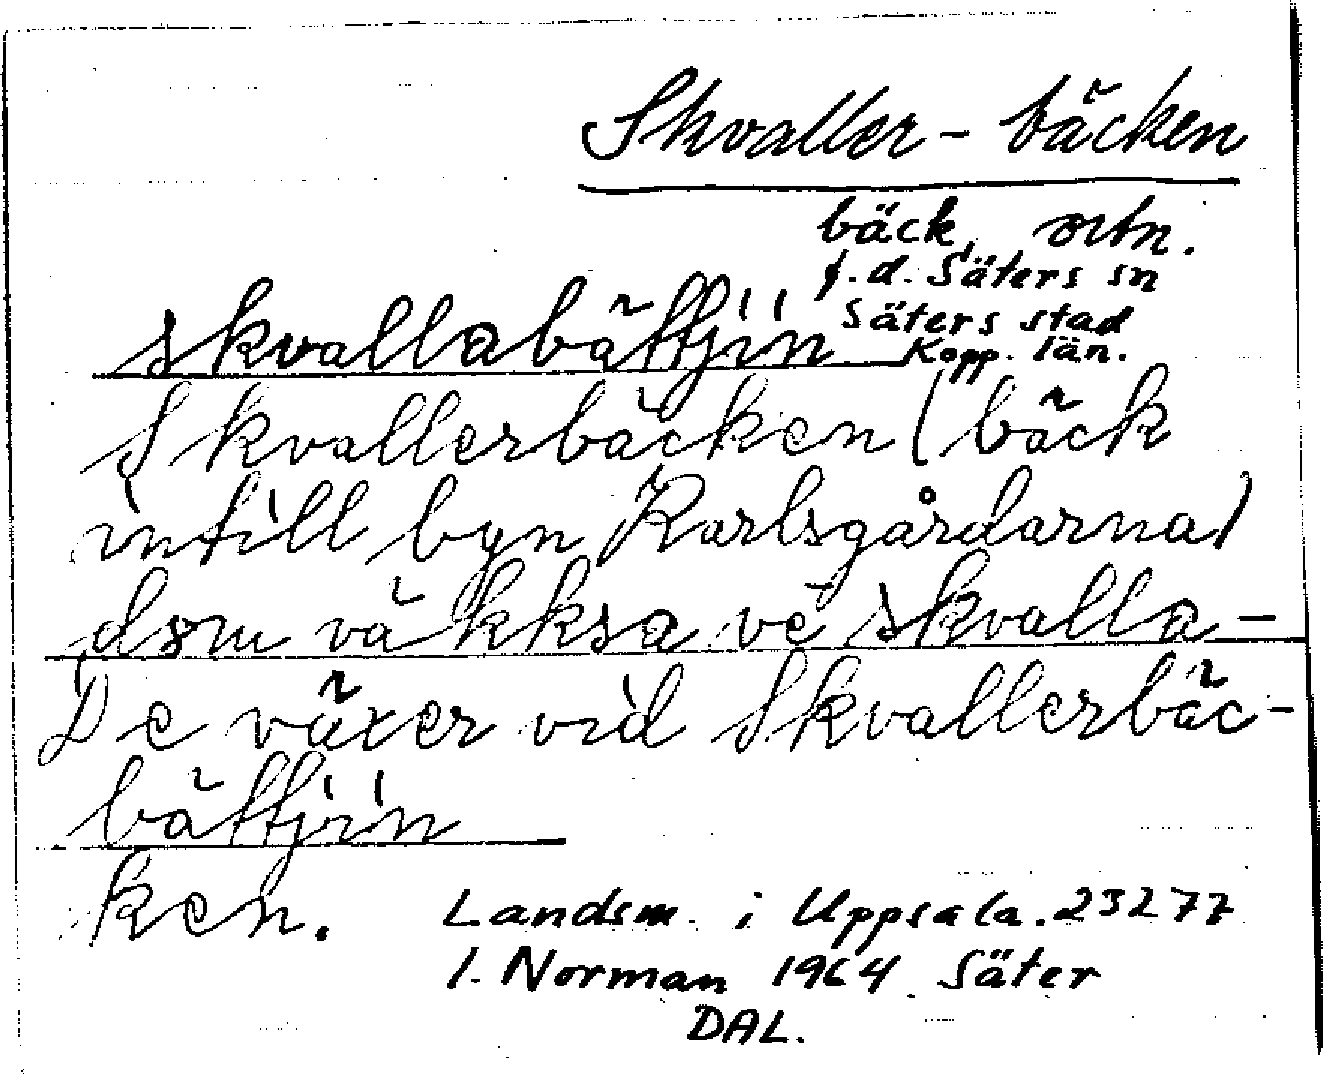 Skvaller-bäcken
bäck, ortn.
f.d. Säters sn
Säters stad
Kopp. län.
skvallabättjin
Skvallerbäcken (bäck
intill byn Karlsgårdarna)
dom väkksa ve skvalla-
De växer vid Skvallerbäc-
bättjin
ken.
Landsm. i Uppsala. 23277
I. Norman 1964 Säter
DAL.